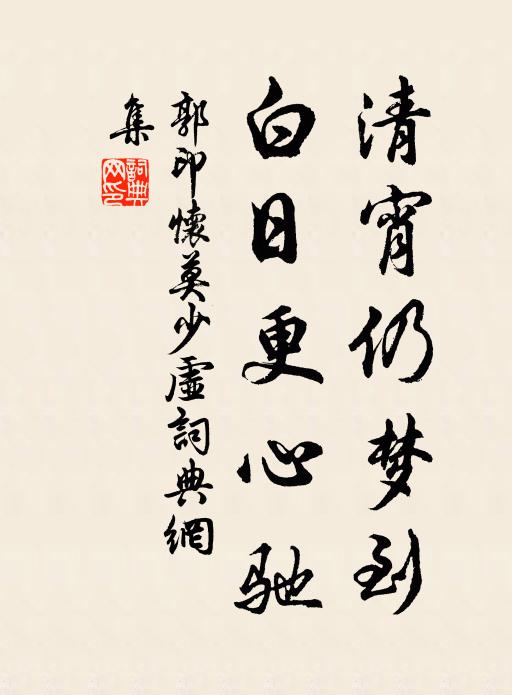 清宵仍梦到
白日更心驰
郭印懷莫少虛詞典網
集
詞典网印